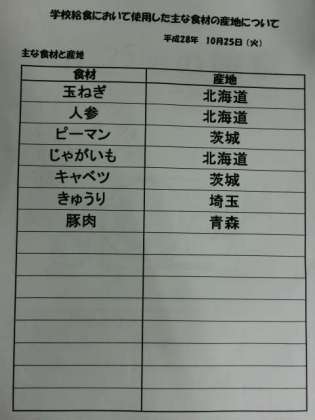 学校給食において使用した主な食材の産地について
平成28年 10月25日(火)
主な食材と産地
食材 産地
玉ねぎ 北海道
人参 北海道
ピーマン 茨城
じゃがいも 北海道
キャベツ 茨城
きゅうり 埼玉
豚肉 青森